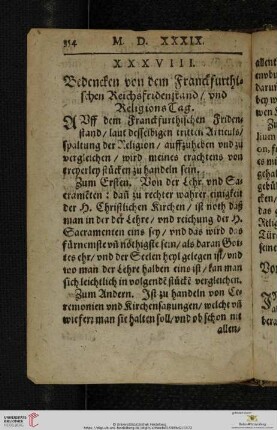 354 M. D. XXXIX.
XXXVIII.
Bedencken von dem Franckfurthi-
schen Reichsfridenstand / vnd
Religions Tag.
AUff dem Franckfurthischen Friden-
stand / laut desselbigen tritten Articuls /
spaltung der Religion / auffzuheben vnd zu
vergleichen / wird meines erachtens von
treyerley stücken zu handeln sein.
Zum Ersten. Von der Lehr vnd Sa-
cramenten: daß zu rechter wahrer einigkeit
der H. Christlichen Kirchen / ist noth daß
man in der der Lehre / vnd reichung der H.
Sacramenten eins sey / vnd das wird das
fürnemste vñ nöthigste sein / als daran Got-
tes ehr / vnd der Seelen heyl gelegen ist / vnd
wo man der Lehre halben eins ist / kan man
sich leichtlich in volgende stücke vergleichen.
Zum Andern. Ist zu handeln von Ce-
remonien vnd Kirchensatzungen / welche vñ
wiefern man sie halten soll / vnd ob schon nit
allen /